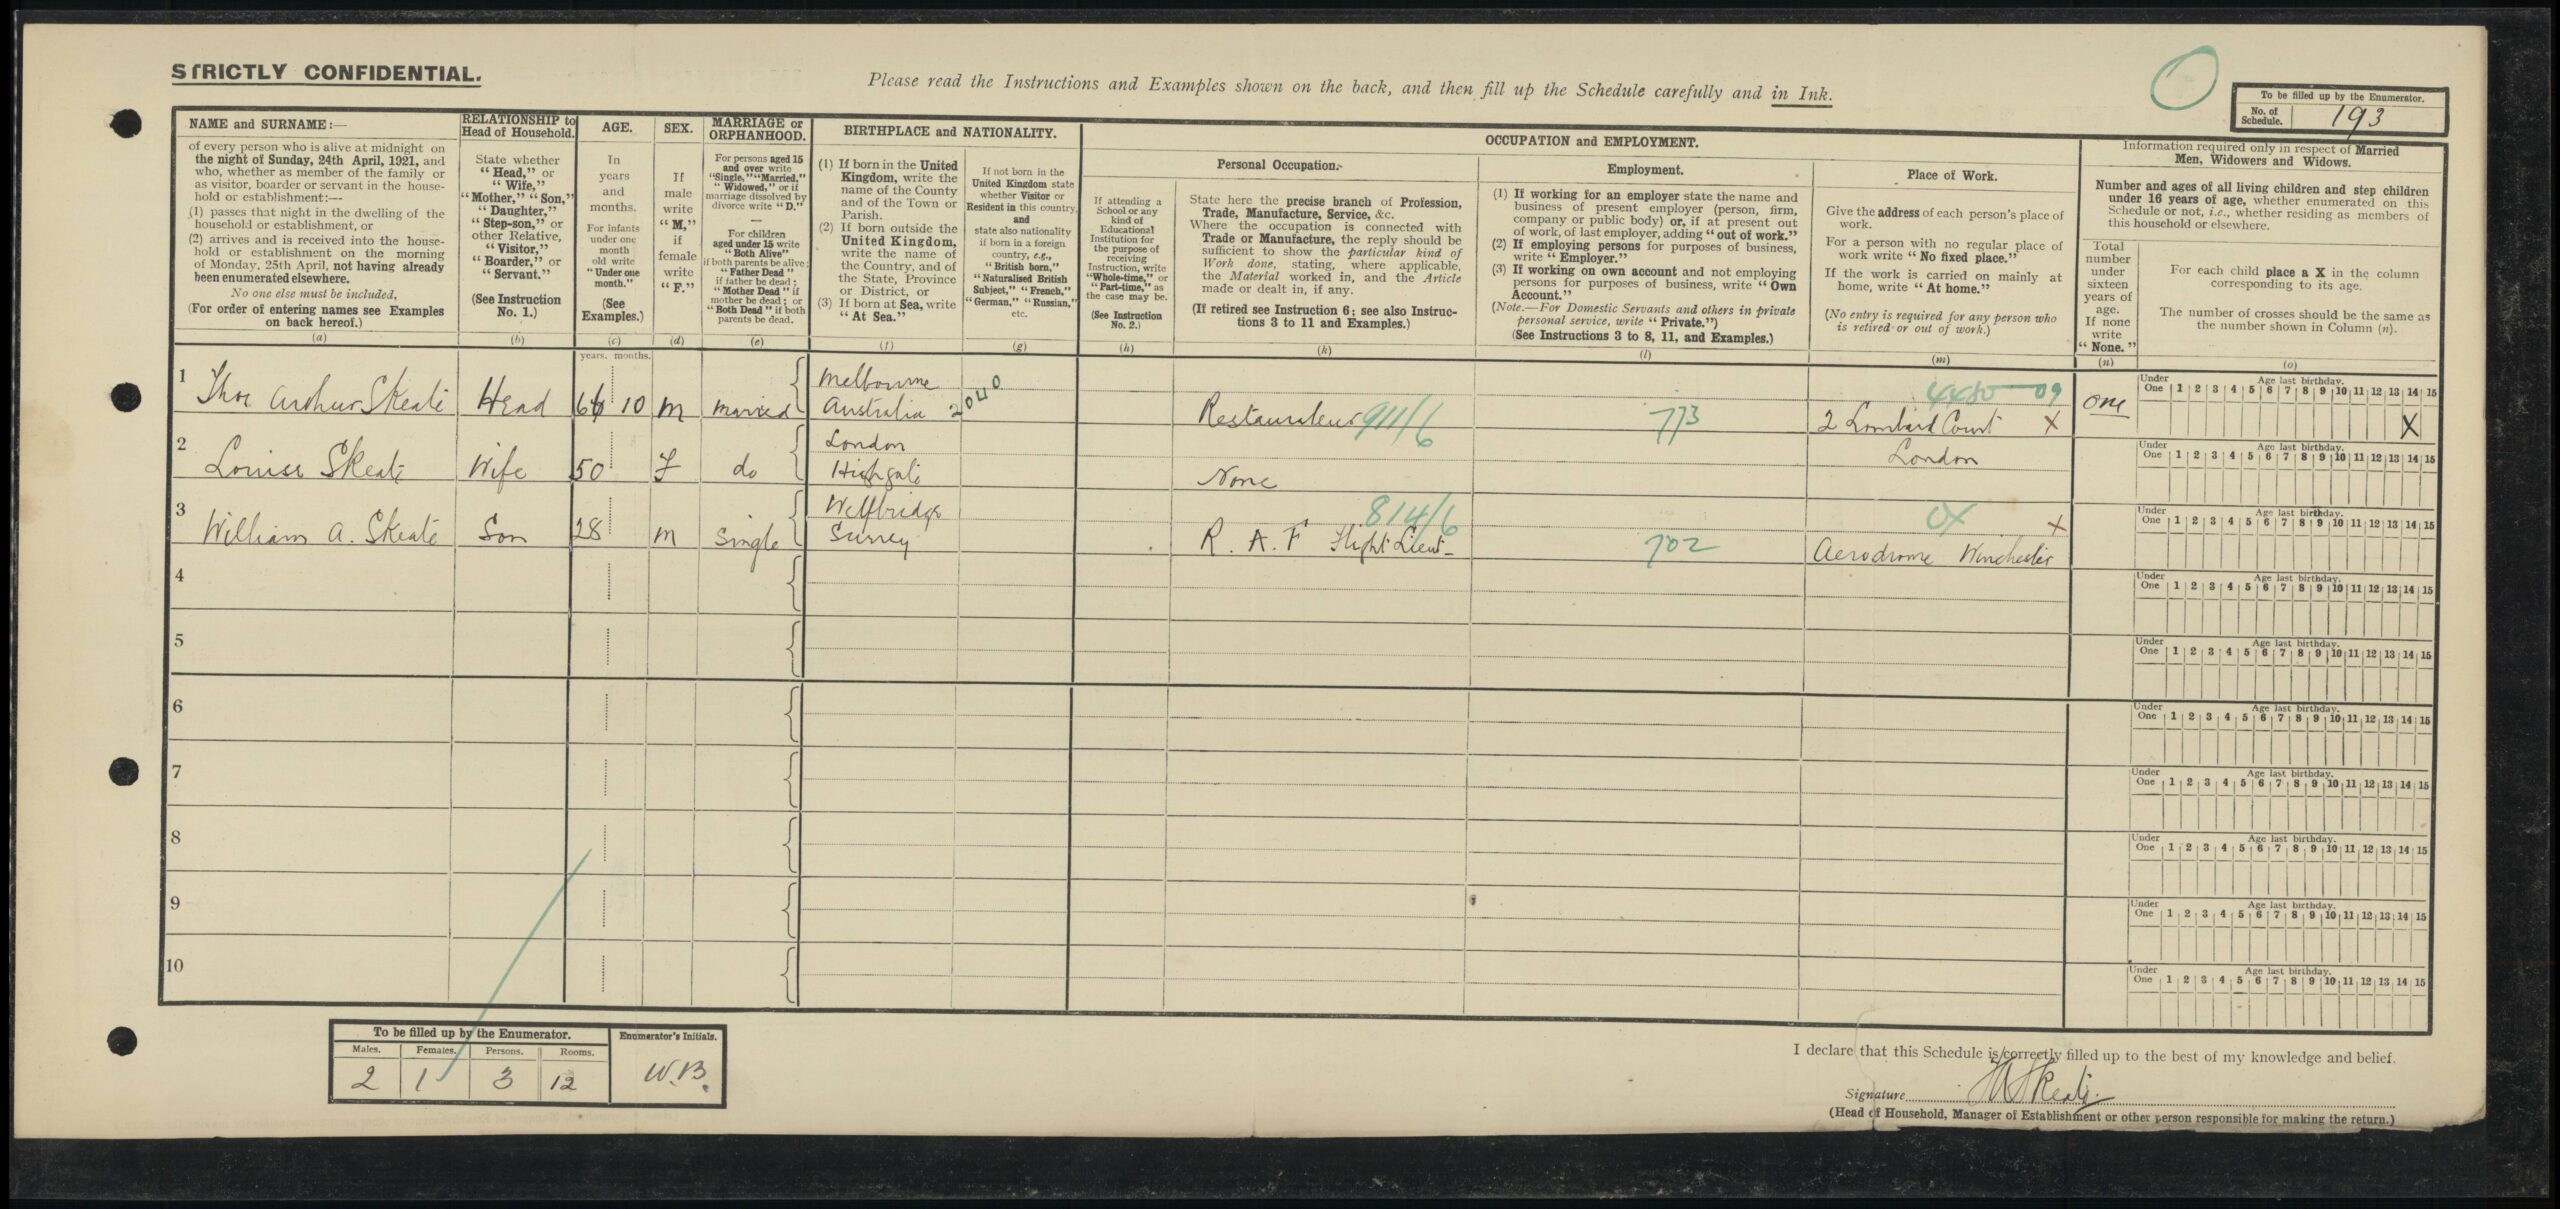 STRICTLY CONFIDENTIAL.
Please read the Instructions and Examples shown on the back, and then fill up the Schedule carefully and in Ink.
To be filled up by the Enumerator.
No. of Schedule. 193
NAME and SURNAME:—
of every person who is alive at midnight on
the night of Sunday, 24th April, 1921, and
who, whether as member of the family or
as visitor, boarder or servant in the house-
hold or establishment:—
(1) passes that night in the dwelling of the
household or establishment, or
(2) arrives and is received into the house-
hold or establishment on the morning
of Monday, 25th April, not having already
been enumerated elsewhere.
No one else must be included,
(For order of entering names see Examples
on back hereof.)
(a)
RELATIONSHIP to
Head of Household.
State whether
"Head," or
"Wife,"
"Mother," "Son,"
"Daughter,"
"Step-son," or
other Relative,
"Visitor,"
"Boarder," or
"Servant."
(See Instruction
No. 1.)
(b)
AGE.
In
years
and
months.
For infants
under one
month
old write
"Under one
month."
(See
Examples.)
(c)
SEX.
If
male
write
"M,"
if
female
write
"F."
(d)
MARRIAGE or
ORPHANHOOD.
For persons aged 15
and over write
"Single," "Married,"
"Widowed," or if
marriage dissolved by
divorce write "D."
—
For children
aged under 15 write
"Both Alive"
if both parents be alive;
"Father Dead"
if father be dead;
"Mother Dead" if
mother be dead; or
"Both Dead" if both
parents be dead.
(e)
BIRTHPLACE and NATIONALITY.
(1) If born in the United
Kingdom, write the
name of the County
and of the Town or
Parish.
(2) If born outside the
United Kingdom,
write the name of
the Country, and of
the State, Province
or District, or
(3) If born at Sea, write
"At Sea."
(f)
If not born in the
United Kingdom state
whether Visitor or
Resident in this country,
and
state also nationality
if born in a foreign
country, e.g.,
"British born,"
"Naturalised British
Subject," "French,"
"German," "Russian,"
etc.
(g)
OCCUPATION and EMPLOYMENT.
If attending a
School or any
kind of
Educational
Institution for
the purpose of
receiving
Instruction, write
"Whole-time," or
"Part-time," as
the case may be.
(See Instruction
No. 2.)
(h)
Personal Occupation.
State here the precise branch of Profession,
Trade, Manufacture, Service, &c.
Where the occupation is connected with
Trade or Manufacture, the reply should be
sufficient to show the particular kind of
Work done, stating, where applicable,
the Material worked in, and the Article
made or dealt in, if any.
(If retired see Instruction 6; see also Instruc-
tions 3 to 11 and Examples.)
(k)
Employment.
(1) If working for an employer state the name and
business of present employer (person, firm,
company or public body) or, if at present out
of work, of last employer, adding "out of work."
(2) If employing persons for purposes of business,
write "Employer."
(3) If working on own account and not employing
persons for purposes of business, write "Own
Account."
(Note.—For Domestic Servants and others in private
personal service, write "Private.")
(See Instructions 3 to 8, 11, and Examples.)
(l)
Place of Work.
Give the address of each person's place of
work.
For a person with no regular place of
work write "No fixed place."
If the work is carried on mainly at
home, write "At home."
(No entry is required for any person who
is retired or out of work.)
(m)
Information required only in respect of Married
Men, Widowers and Widows.
Number and ages of all living children and step children
under 16 years of age, whether enumerated on this
Schedule or not, i.e., whether residing as members of
this household or elsewhere.
Total
number
under
sixteen
years of
age.
If none
write
"None."
(n)
For each child place a X in the column
corresponding to its age.
The number of crosses should be the same as
the number shown in Column (n).
(o)
years. months.
1 Thos Arthur Skeate Head 66 10 M Married Melbourne
Australia 2040 Restaurateur 911/6 773 4480 09
2 Lombard Court X
London
one
X
2 Louise Skeate Wife 50 F do London
Highgate None
3 William A. Skeate Son 28 M Single Weybridge
Surrey R.A.F Flight Lieut 814/6 702 X
Aerodrome Winchester
4
5
6
7
8
9
10
Under One 1 2 3 4 5 6 7 8 9 10 11 12 13 14 15
Age last birthday.
Under One 1 2 3 4 5 6 7 8 9 10 11 12 13 14 15
Age last birthday.
Under One 1 2 3 4 5 6 7 8 9 10 11 12 13 14 15
Age last birthday.
Under One 1 2 3 4 5 6 7 8 9 10 11 12 13 14 15
Age last birthday.
Under One 1 2 3 4 5 6 7 8 9 10 11 12 13 14 15
Age last birthday.
Under One 1 2 3 4 5 6 7 8 9 10 11 12 13 14 15
Age last birthday.
Under One 1 2 3 4 5 6 7 8 9 10 11 12 13 14 15
Age last birthday.
Under One 1 2 3 4 5 6 7 8 9 10 11 12 13 14 15
Age last birthday.
Under One 1 2 3 4 5 6 7 8 9 10 11 12 13 14 15
Age last birthday.
Under One 1 2 3 4 5 6 7 8 9 10 11 12 13 14 15
Age last birthday.
To be filled up by the Enumerator.
Males. Females. Persons. Rooms.
2 1 3 12
Enumerator's Initials.
W.B.
I declare that this Schedule is correctly filled up to the best of my knowledge and belief.
Signature Skeate
(Head of Household, Manager of Establishment or other person responsible for making the return.)